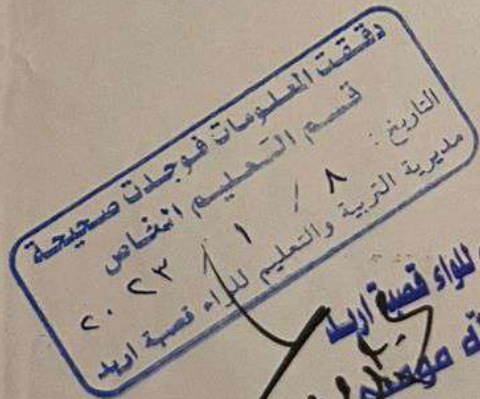 دققت المعلومات فوجدت صحيحة
قسم التعليم الخاص
التاريخ: ٨ / ١ / ٢٠٢٣
مديرية التربية والتعليم للواء قصبة اربد
للواء قصبة اربد